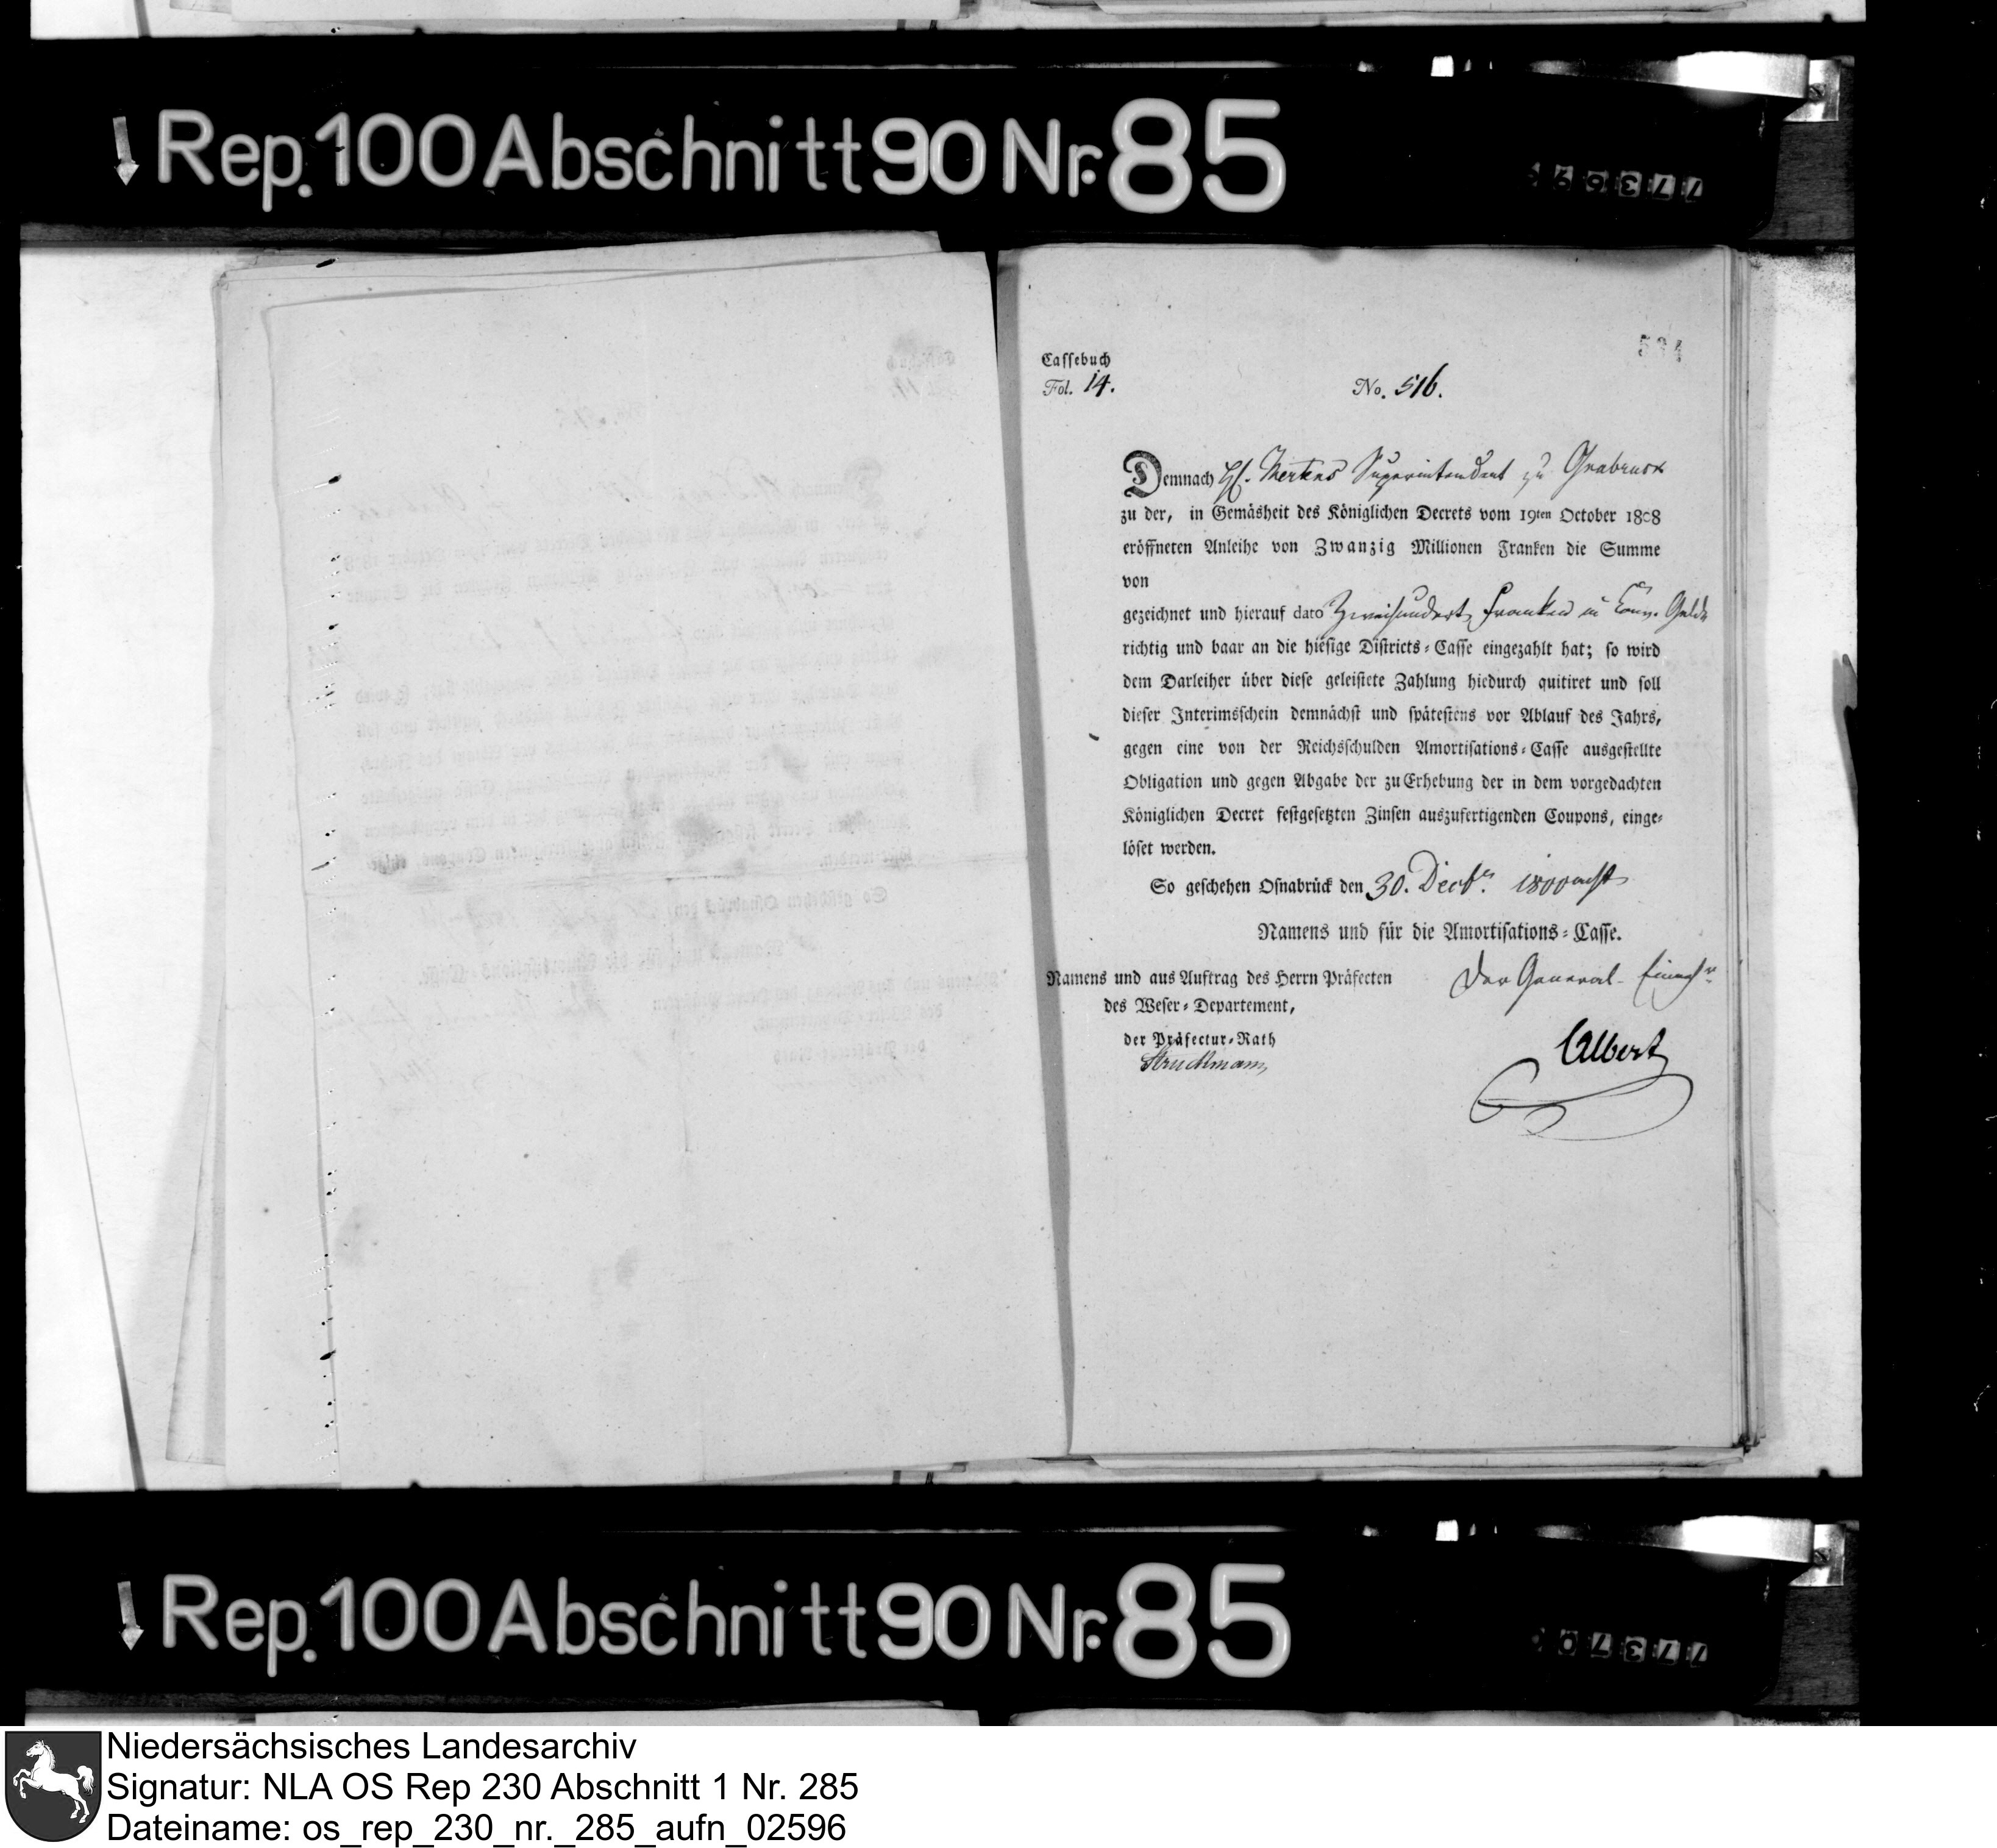 Rep. 100 Abschnitt 90 Nr. 85
Cassebuch
Fol. 14.
No. 516.
534
Demnach H. Mertens Superintendent zu Osnabrück
zu der, in Gemäsheit des Königlichen Decrets vom 19ten October 1808
eröffneten Anleihe von Zwanzig Millionen Franken die Summe
von
gezeichnet und hierauf dato Zweihundert Franken in Conv. Gelde
richtig und baar an die hiesige Districts-Casse eingezahlt hat; so wird
dem Darleiher über diese geleistete Zahlung hiedurch quitiret und soll
dieser Interimsschein demnächst und spätestens vor Ablauf des Jahrs,
gegen eine von der Reichsschulden Amortisations-Casse ausgestellte
Obligation und gegen Abgabe der zu Erhebung der in dem vorgedachten
Königlichen Decret festgesetzten Zinsen auszufertigenden Coupons, einge-
löset werden.
So geschehen Osnabrück den 30. Decbr. 1800 acht
Namens und für die Amortisations-Casse.
Namens und aus Auftrag des Herrn Präfecten
des Weser-Departement,
der Präfectur-Rath
Struckmann
Der General-
Albert
Rep. 100 Abschnitt 90 Nr. 85
Niedersächsisches Landesarchiv
Signatur: NLA OS Rep 230 Abschnitt 1 Nr. 285
Dateiname: os_rep_230_nr._285_aufn_02596